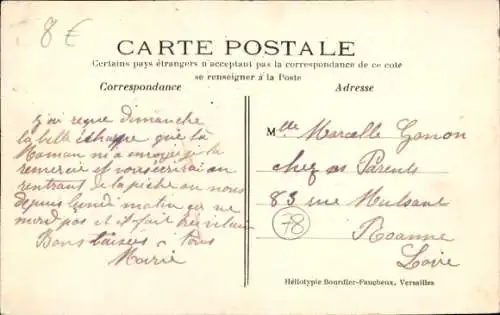 8 €
CARTE POSTALE
Certains pays étrangers n'acceptent pas la correspondance de ce coté
se renseigner à la Poste
Correspondance
Adresse
J'ai reçue dimanche
la belle écharpe que ta
Maman m'a envoyé je la
remercie et vous écrirai en
rentrant de la pêche ou nous
depuis lundi matin ça ne
mord pas et il fait très vilain
Bons baisers a tous
Marie
Mlle Marcelle Gonon
chez ses Parents
83 rue Mulsant
78
Roanne
Loire
Héliotypie Bourdier-Faucheux, Versailles